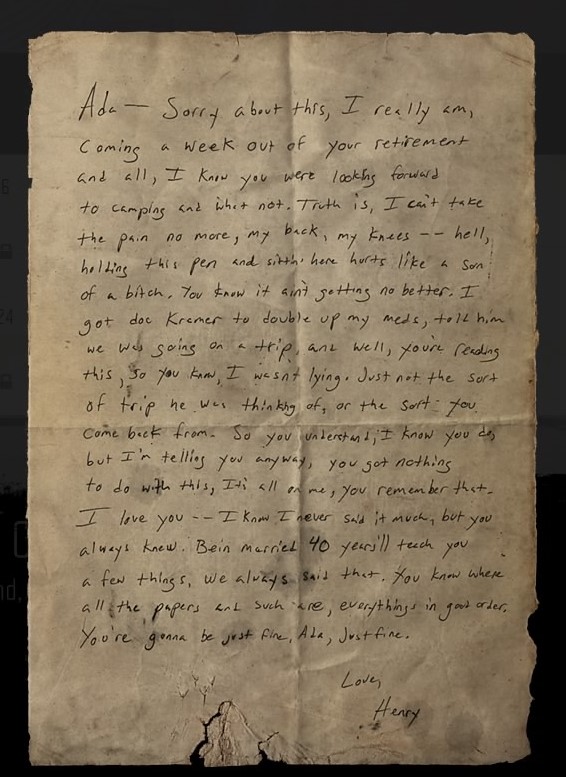 Ada — Sorry about this, I really am,
Coming a week out of your retirement
and all, I know you were looking forward
to camping and what not. Truth is, I can't take
the pain no more, my back, my knees -- hell,
holding this pen and sittin' here hurts like a son
of a bitch. You know it ain't getting no better. I
got doc Kramer to double up my meds, told him
we was going on a trip, and well, you're reading
this, so you know, I wasn't lying. Just not the sort
of trip he was thinking of, or the sort you
come back from. So you understand, I know you do,
but I'm telling you anyway, you got nothing
to do with this, It's all on me, you remember that.
I love you -- I know I never said it much, but you
always knew. Bein married 40 years'll teach you
a few things, we always said that. You know where
all the papers and such are, everythings in good order.
You're gonna be just fine, Ada, Just fine.
Love,
Henry